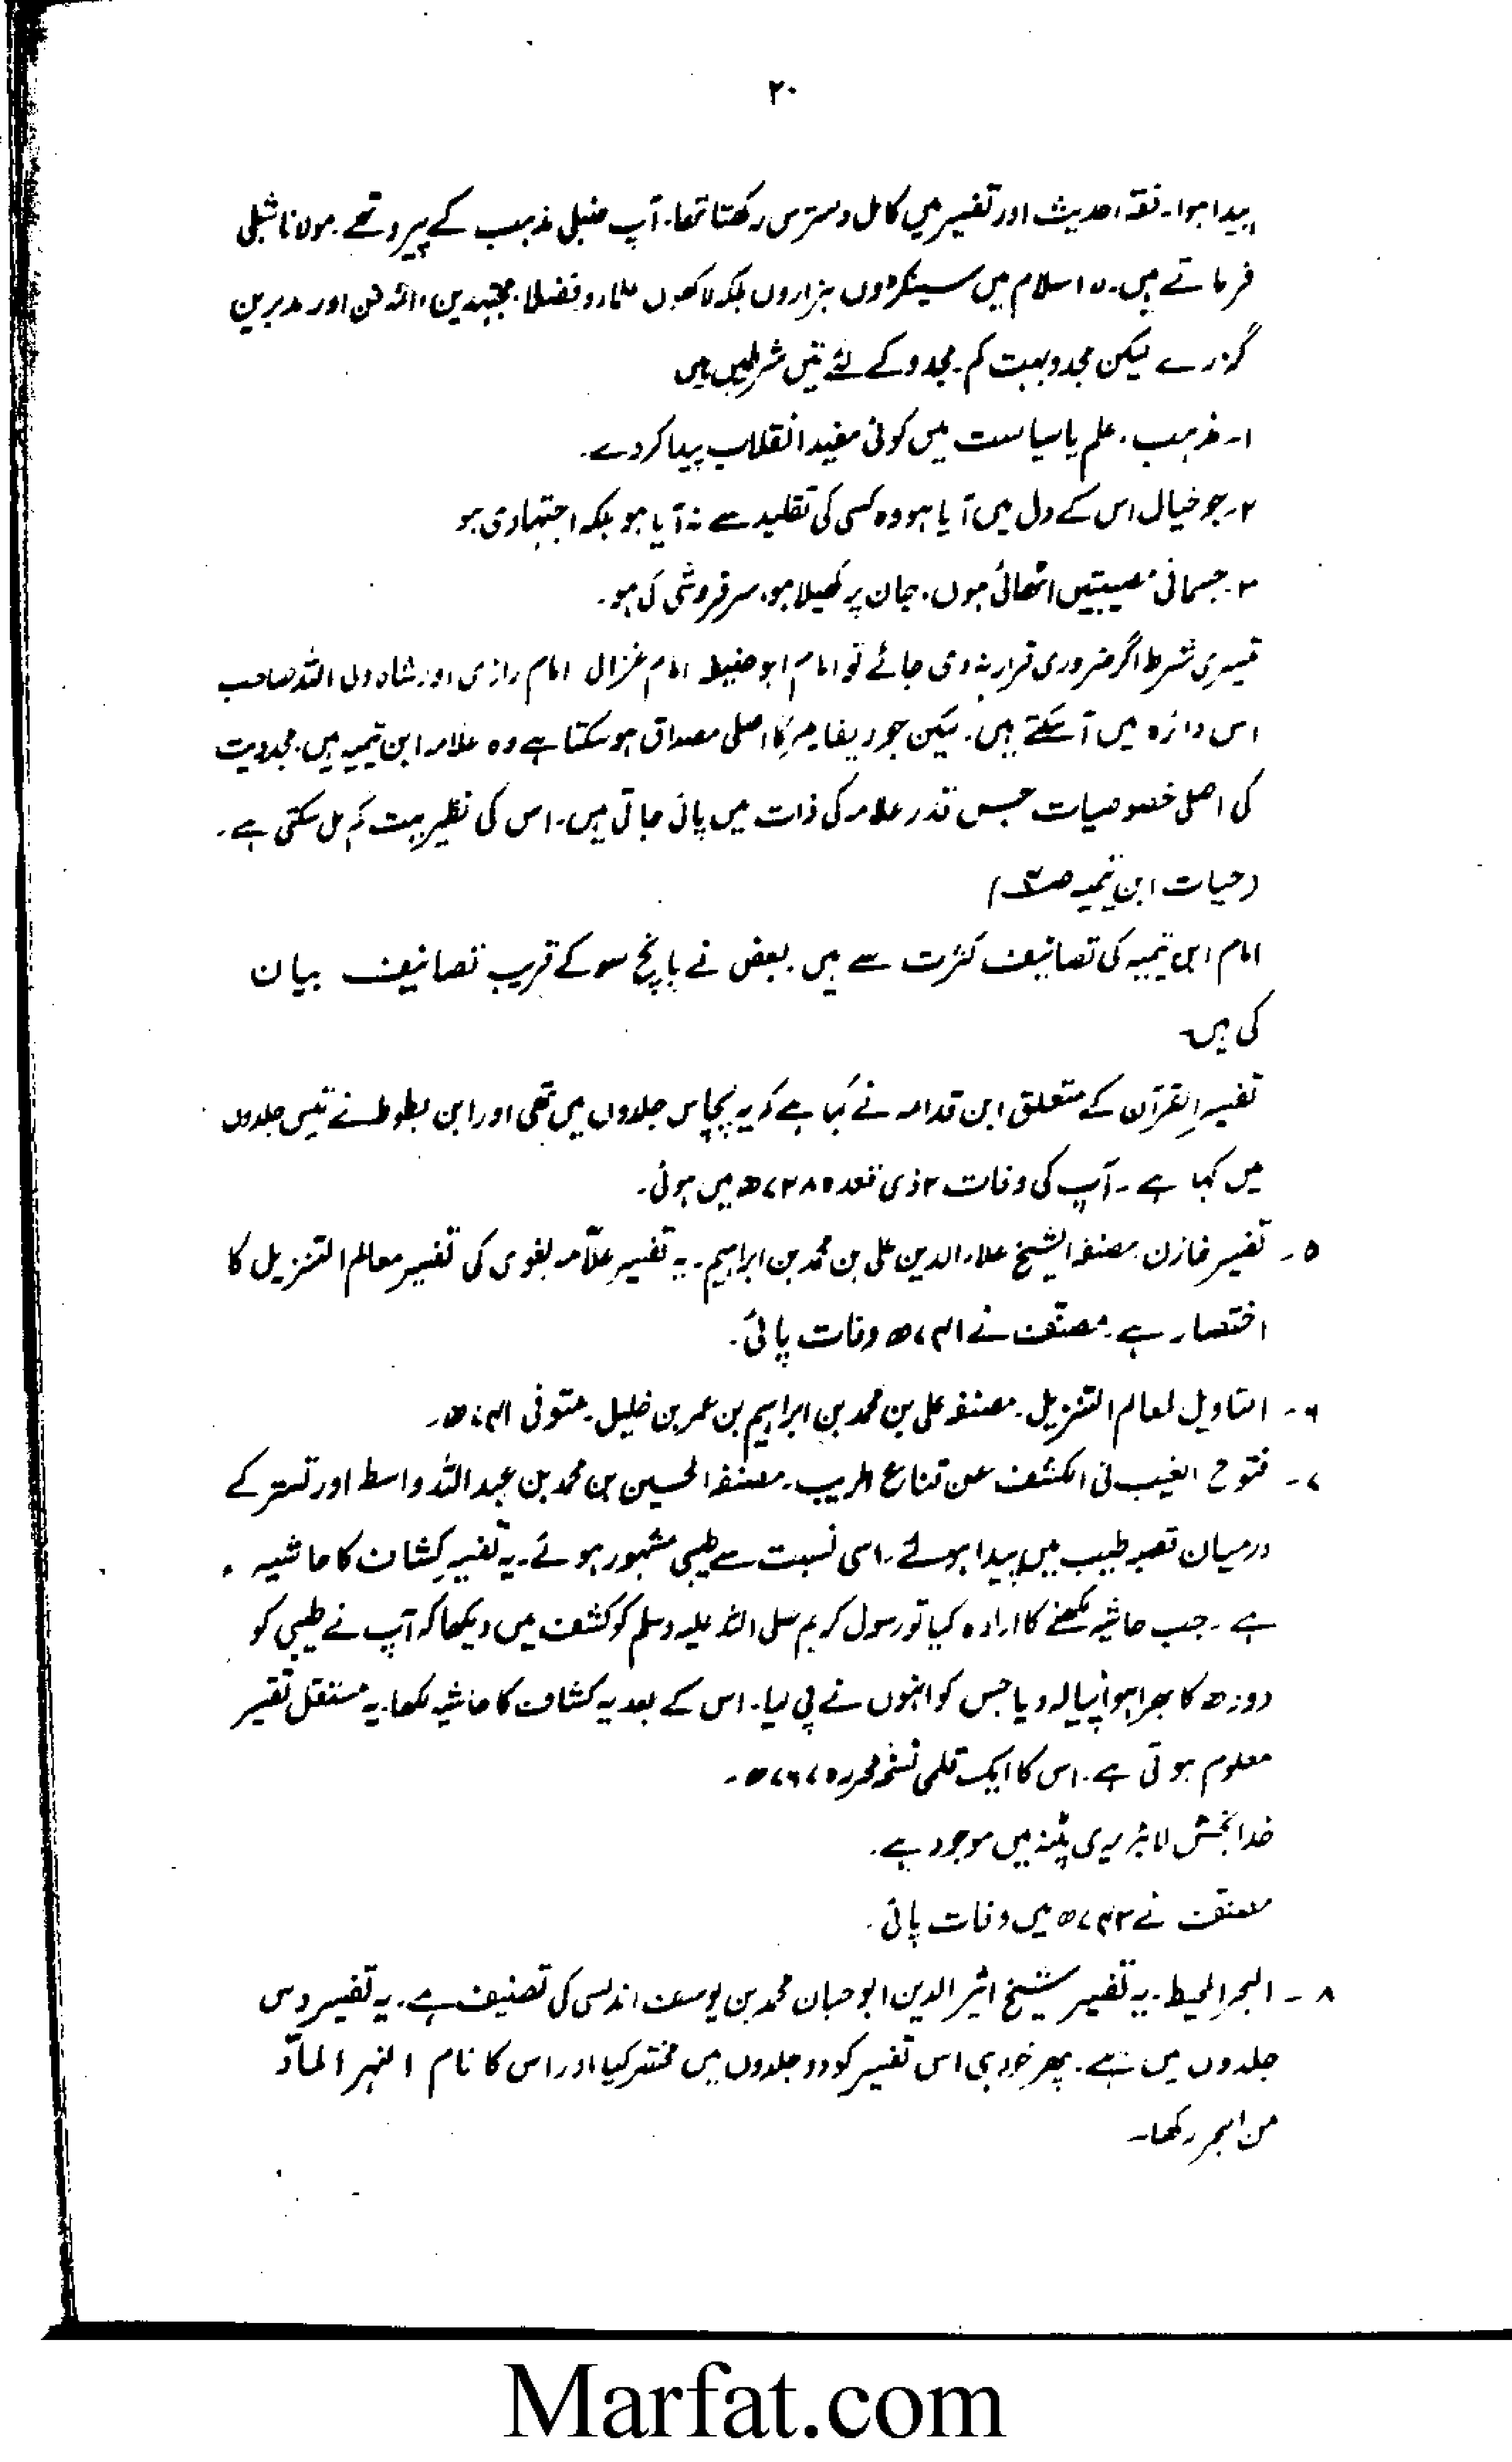 ۲۰
پیدا ہوا۔ فقہ، حدیث اور تفسیر میں کامل دسترس رکھتا تھا۔ آپ حنبلی مذہب کے پیرو تھے۔ مولانا شبلی
فرماتے ہیں۔ اسلام میں سینکڑوں ہزاروں بلکہ لاکھوں علماء و فضلا، مجتہدین، ائمہ فن اور مدبرین
گزرے لیکن مجدد بہت کم۔ مجدد کے لئے تین شرطیں ہیں
۱۔ مذہب، علم یا سیاست میں کوئی مفید انقلاب پیدا کر دے۔
۲۔ جو خیال اس کے دل میں آیا ہو وہ کسی کی تقلید سے نہ آیا ہو بلکہ اجتہادی ہو
۳۔ جسمانی مصیبتیں اٹھائی ہوں، جان پر کھیلا ہو، سرفروشی کی ہو۔
تیسری شرط اگر ضروری قرار نہ دی جائے تو امام ابو حنیفہ امام غزالی امام رازی اور شاہ ولی اللہ صاحب
اس دائرہ میں آسکتے ہیں۔ لیکن جو ریفارمر کا اصلی مصداق ہو سکتا ہے وہ علامہ ابن تیمیہ ہیں، مجددیت
کی اصلی خصوصیات جس قدر علامہ کی ذات میں پائی جاتی ہیں۔ اس کی نظیر بہت کم مل سکتی ہے۔
(حیات ابن تیمیہ ص)
امام ابن تیمیہ کی تصانیف کثرت سے ہیں۔ بعض نے پانچ سو کے قریب تصانیف بیان
کی ہیں۔
تفسیر القرآن کے متعلق ابن قدامہ نے کہا ہے کہ یہ پچاس جلدوں میں تھی اور ابن بطوطہ نے تیس جلدوں
میں کہا ہے۔ آپ کی وفات ۲ ذی قعدہ ۷۲۸ھ میں ہوئی۔
۵۔ تفسیر خازن مصنفہ الشیخ علاء الدین علی بن محمد بن ابراہیم۔ یہ تفسیر علامہ بغوی کی تفسیر معالم التنزیل کا
اختصار ہے۔ مصنف نے ۷۴۱ھ وفات پائی۔
۶۔ التاویل لمعالم التنزیل۔ مصنفہ علی بن محمد بن ابراہیم بن عمر بن خلیل۔ متوفی ۷۴۱ھ۔
۷۔ فتوح الغیب فی الکشف عن قناع الریب۔ مصنفہ الحسین بن محمد بن عبد اللہ واسط اور تستر کے
درمیان قصبہ طیب میں پیدا ہوئے۔ اسی نسبت سے طیبی مشہور ہوئے۔ یہ تفسیر کشاف کا حاشیہ
ہے۔ جب حاشیہ لکھنے کا ارادہ کیا تو رسول کریم صلی اللہ علیہ وسلم کو کشف میں دیکھا کہ آپ نے طیبی کو
دودھ کا بھرا ہوا پیالہ دیا جس کو انہوں نے پی لیا۔ اس کے بعد یہ کشاف کا حاشیہ لکھا۔ یہ مستقل تفسیر
معلوم ہوتی ہے۔ اس کا ایک قلمی نسخہ محررہ ۷۶۷ھ۔
خدا بخش لائبریری پٹنہ میں موجود ہے۔
مصنف نے ۷۴۳ھ میں وفات پائی۔
۸۔ البحر المحیط۔ یہ تفسیر شیخ اثیر الدین ابو حبان محمد بن یوسف اندلسی کی تصنیف ہے۔ یہ تفسیر دس
جلدوں میں ہے۔ پھر خود ہی اس تفسیر کو دو جلدوں میں مختصر کیا اور اس کا نام النہر المادّ
من البحر رکھا۔
Marfat.com